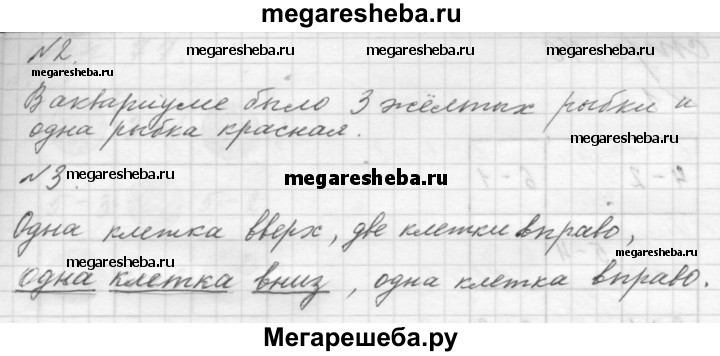 megaresheba.ru
№2.
megaresheba.ru megaresheba.ru
megaresheba.ru
В аквариуме было 3 жёлтых рыбки и
одна рыбка красная.
megaresheba.ru
№3.
megaresheba.ru megaresheba.ru
Одна клетка вверх, две клетки вправо,
megaresheba.ru megaresheba.ru
одна клетка вниз, одна клетка вправо.
Мегарешеба.ру